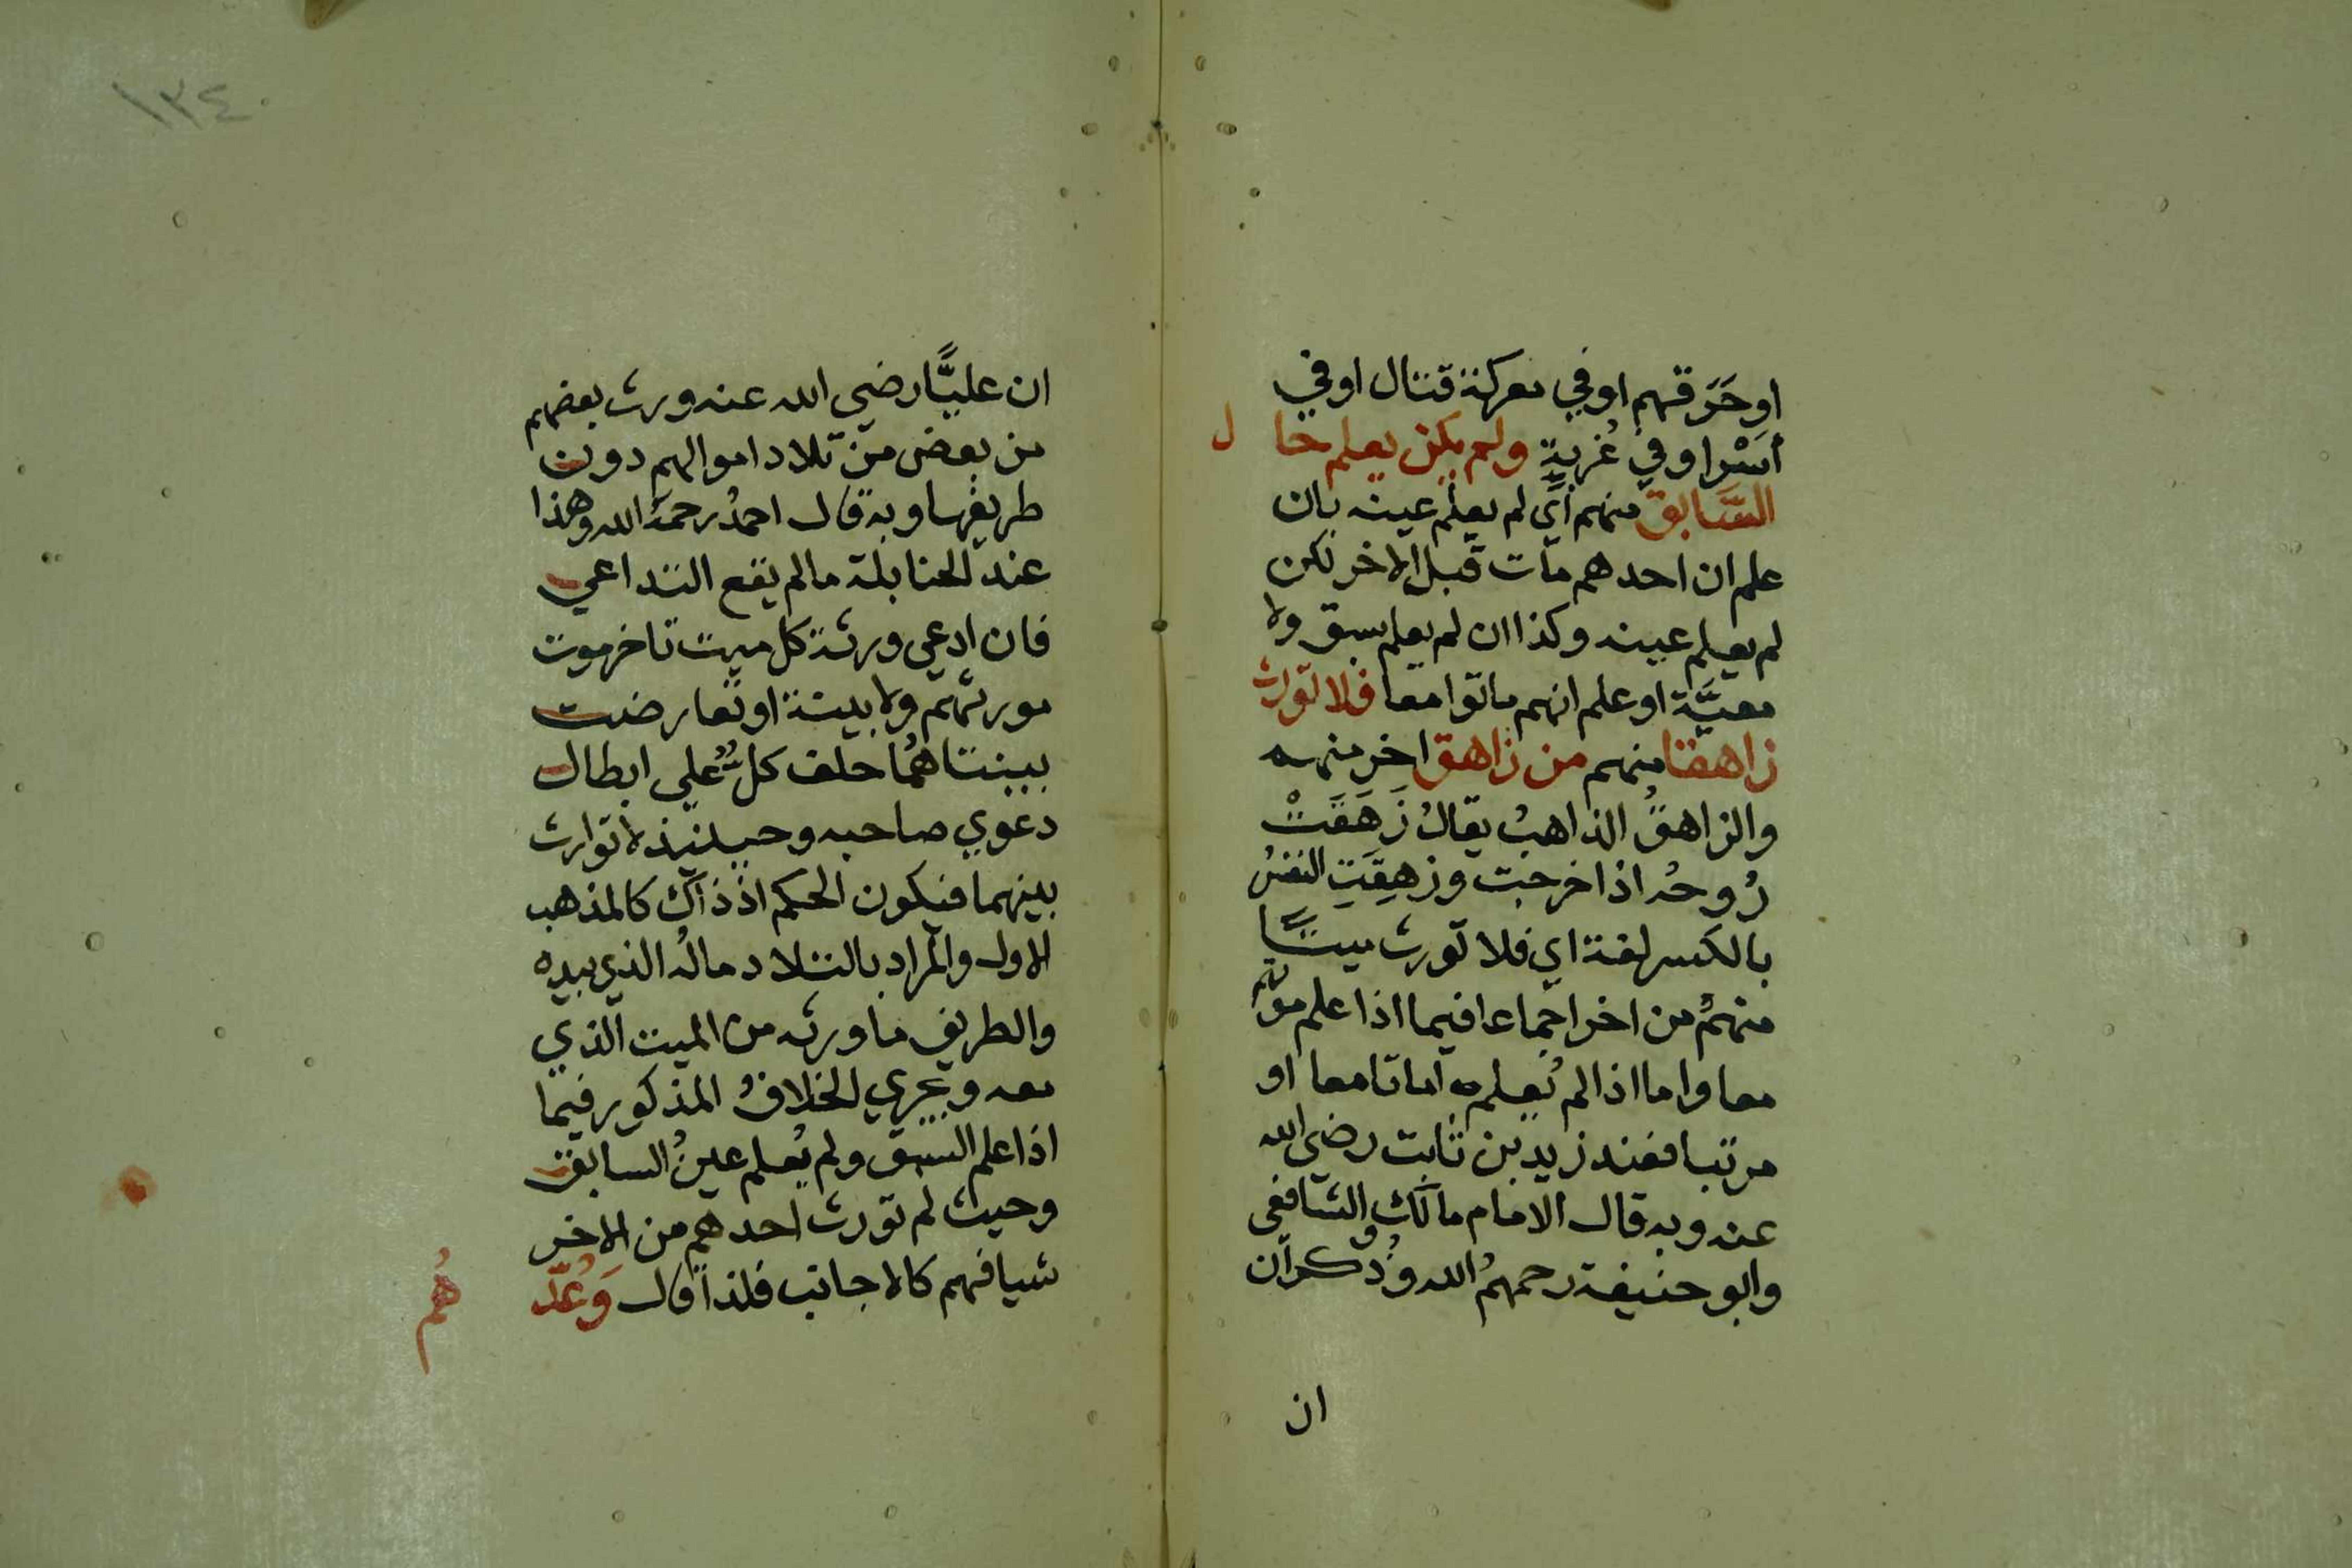 او حَرَقهم او في معركة قتال او في
أسْر او في غُربةٍ ولم يكن يعلم حال
السَّابق منهم أي لم يعلم عينه بان
علم ان احدهم مات قبل الاخر لكن
لم يعلم عينه وكذا ان لم يعلم سبق ولا
معيَّة او علم انهم ماتوا معا فلا تورث
زاهقا منهم من زاهق اخر منهم
والزاهقُ الذاهبُ يقالُ زَهَقَتْ
رُوحُه اذا خرجت وزهِقَتِ النفسُ
بالكسر لغة اي فلا تورث ميتًا
منهُم من اخر اجماعا فيما اذا علم موتهم
معا واما اذا لم نعلمه اماتا معا او
مرتبا فعند زيد بن ثابت رضي الله
عنه وبه قال الامام مالك والشافعي
وابو حنيفة رحمهُم الله وذُكر ان
ان
١٣٤
ان عليًّا رضي الله عنه ورث بعضهم
من بعض من تلاد اموالهم دون
طريفها وبه قال احمدُ رحمَهُ الله وهذا
عند الحنابلة ما لم يقع التداعي
فان ادعي ورثة كل ميت تاخر موت
مورثهم ولا بينة او تعارضت
ببينتاهمُا حلف كلٌّ علي ابطال
دعوي صاحبه وحينيذ لا توارث
بينهما فيكون الحكم اذ ذاك كالمذهب
الاول والمراد بالتلاد مالُه الذي بيده
والطريف ما ورثه من الميت الذي
معه ويجري الخلافُ المذكور فيما
اذا علم السبق ولم يُعلم عينُ السابق
وحيث لم تورث احدهم من الاخر
شيا فهم كالاجانب فلذا قال وَعُدّ
هُم